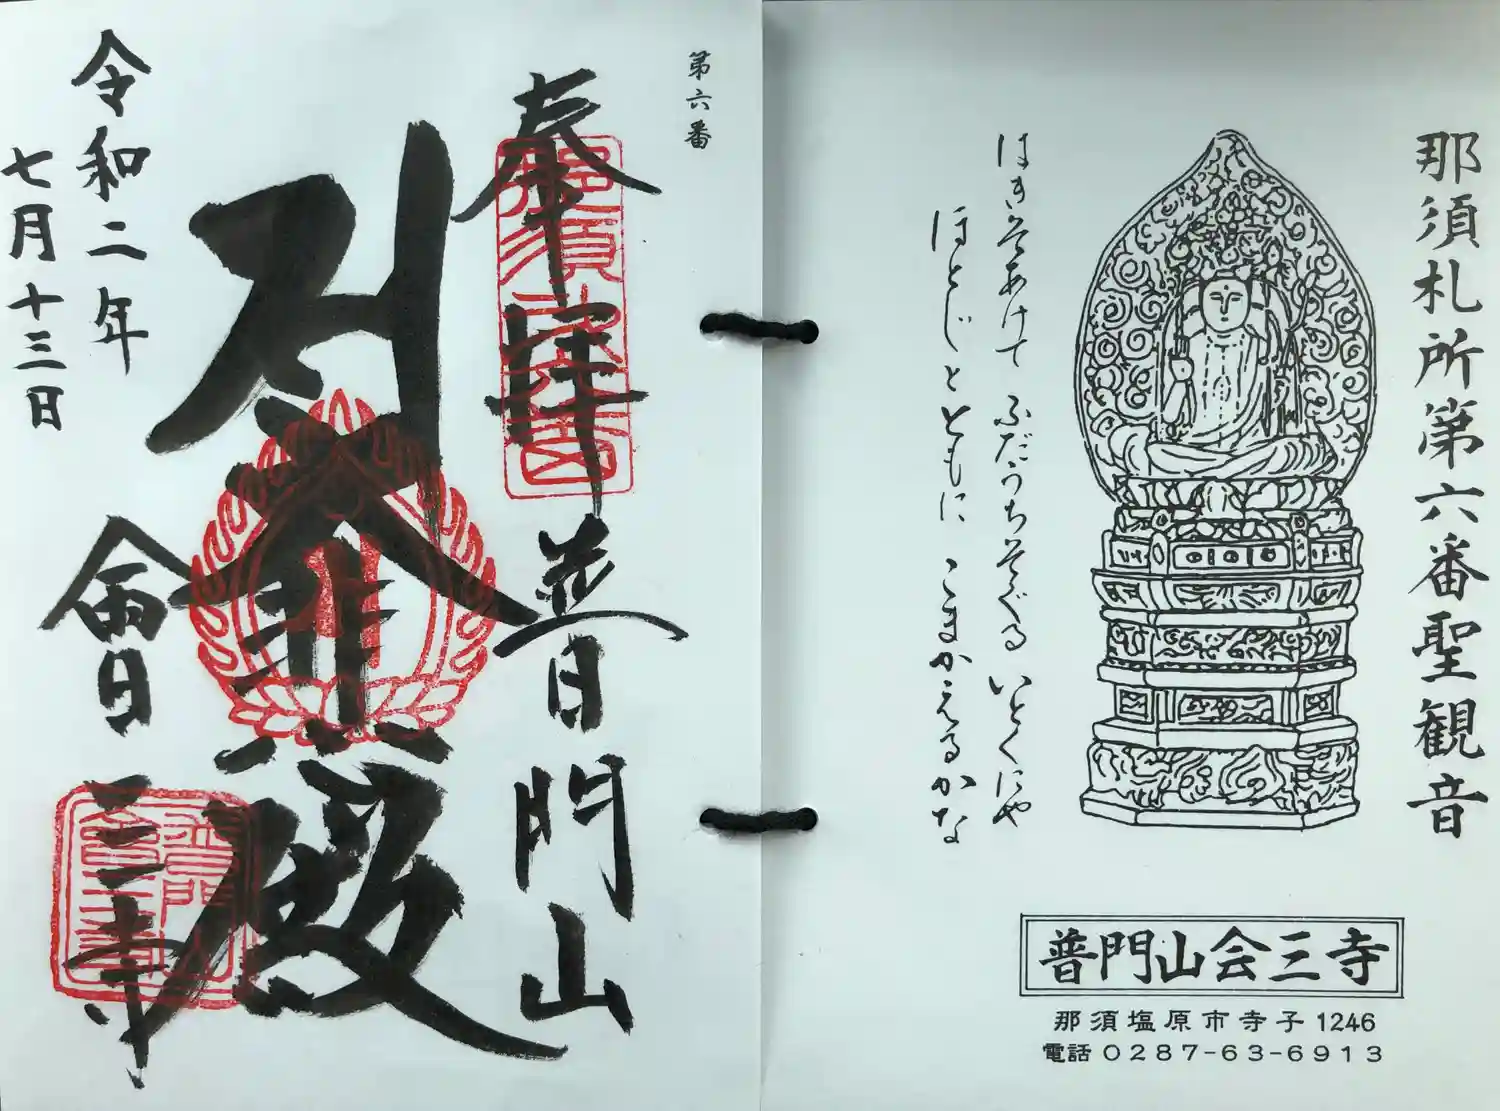 那須札所第六番聖観音
はきそあけて ふだうちそぐる いとくにや
ほとじとともに こまかえるかな
普門山会三寺
那須塩原市寺子1246
電話0287-63-6913
第六番
奉拝
普門山
大悲殿
會三寺
令和二年
七月十三日
普門山
會三寺